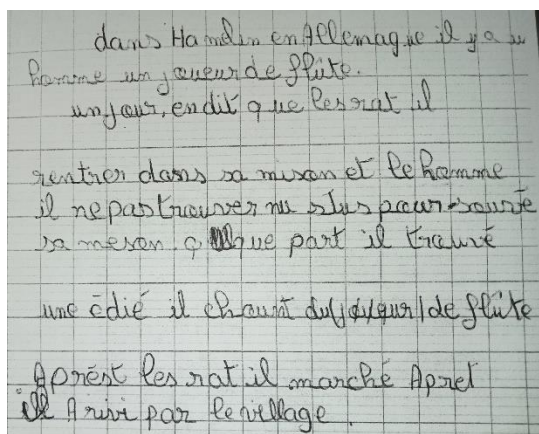 dans Hamlin en Allemagne il y a u
homme un joueur de flûte.
un jour, en dit que les rat il
rentrer dans sa mison et le homme
il ne pas trouver nu slus pour souve
sa meson quelque part il trouvé
une édié il chount du joyeur de flûte
Aprést les rat il marché Apret
il Arivi par le village.